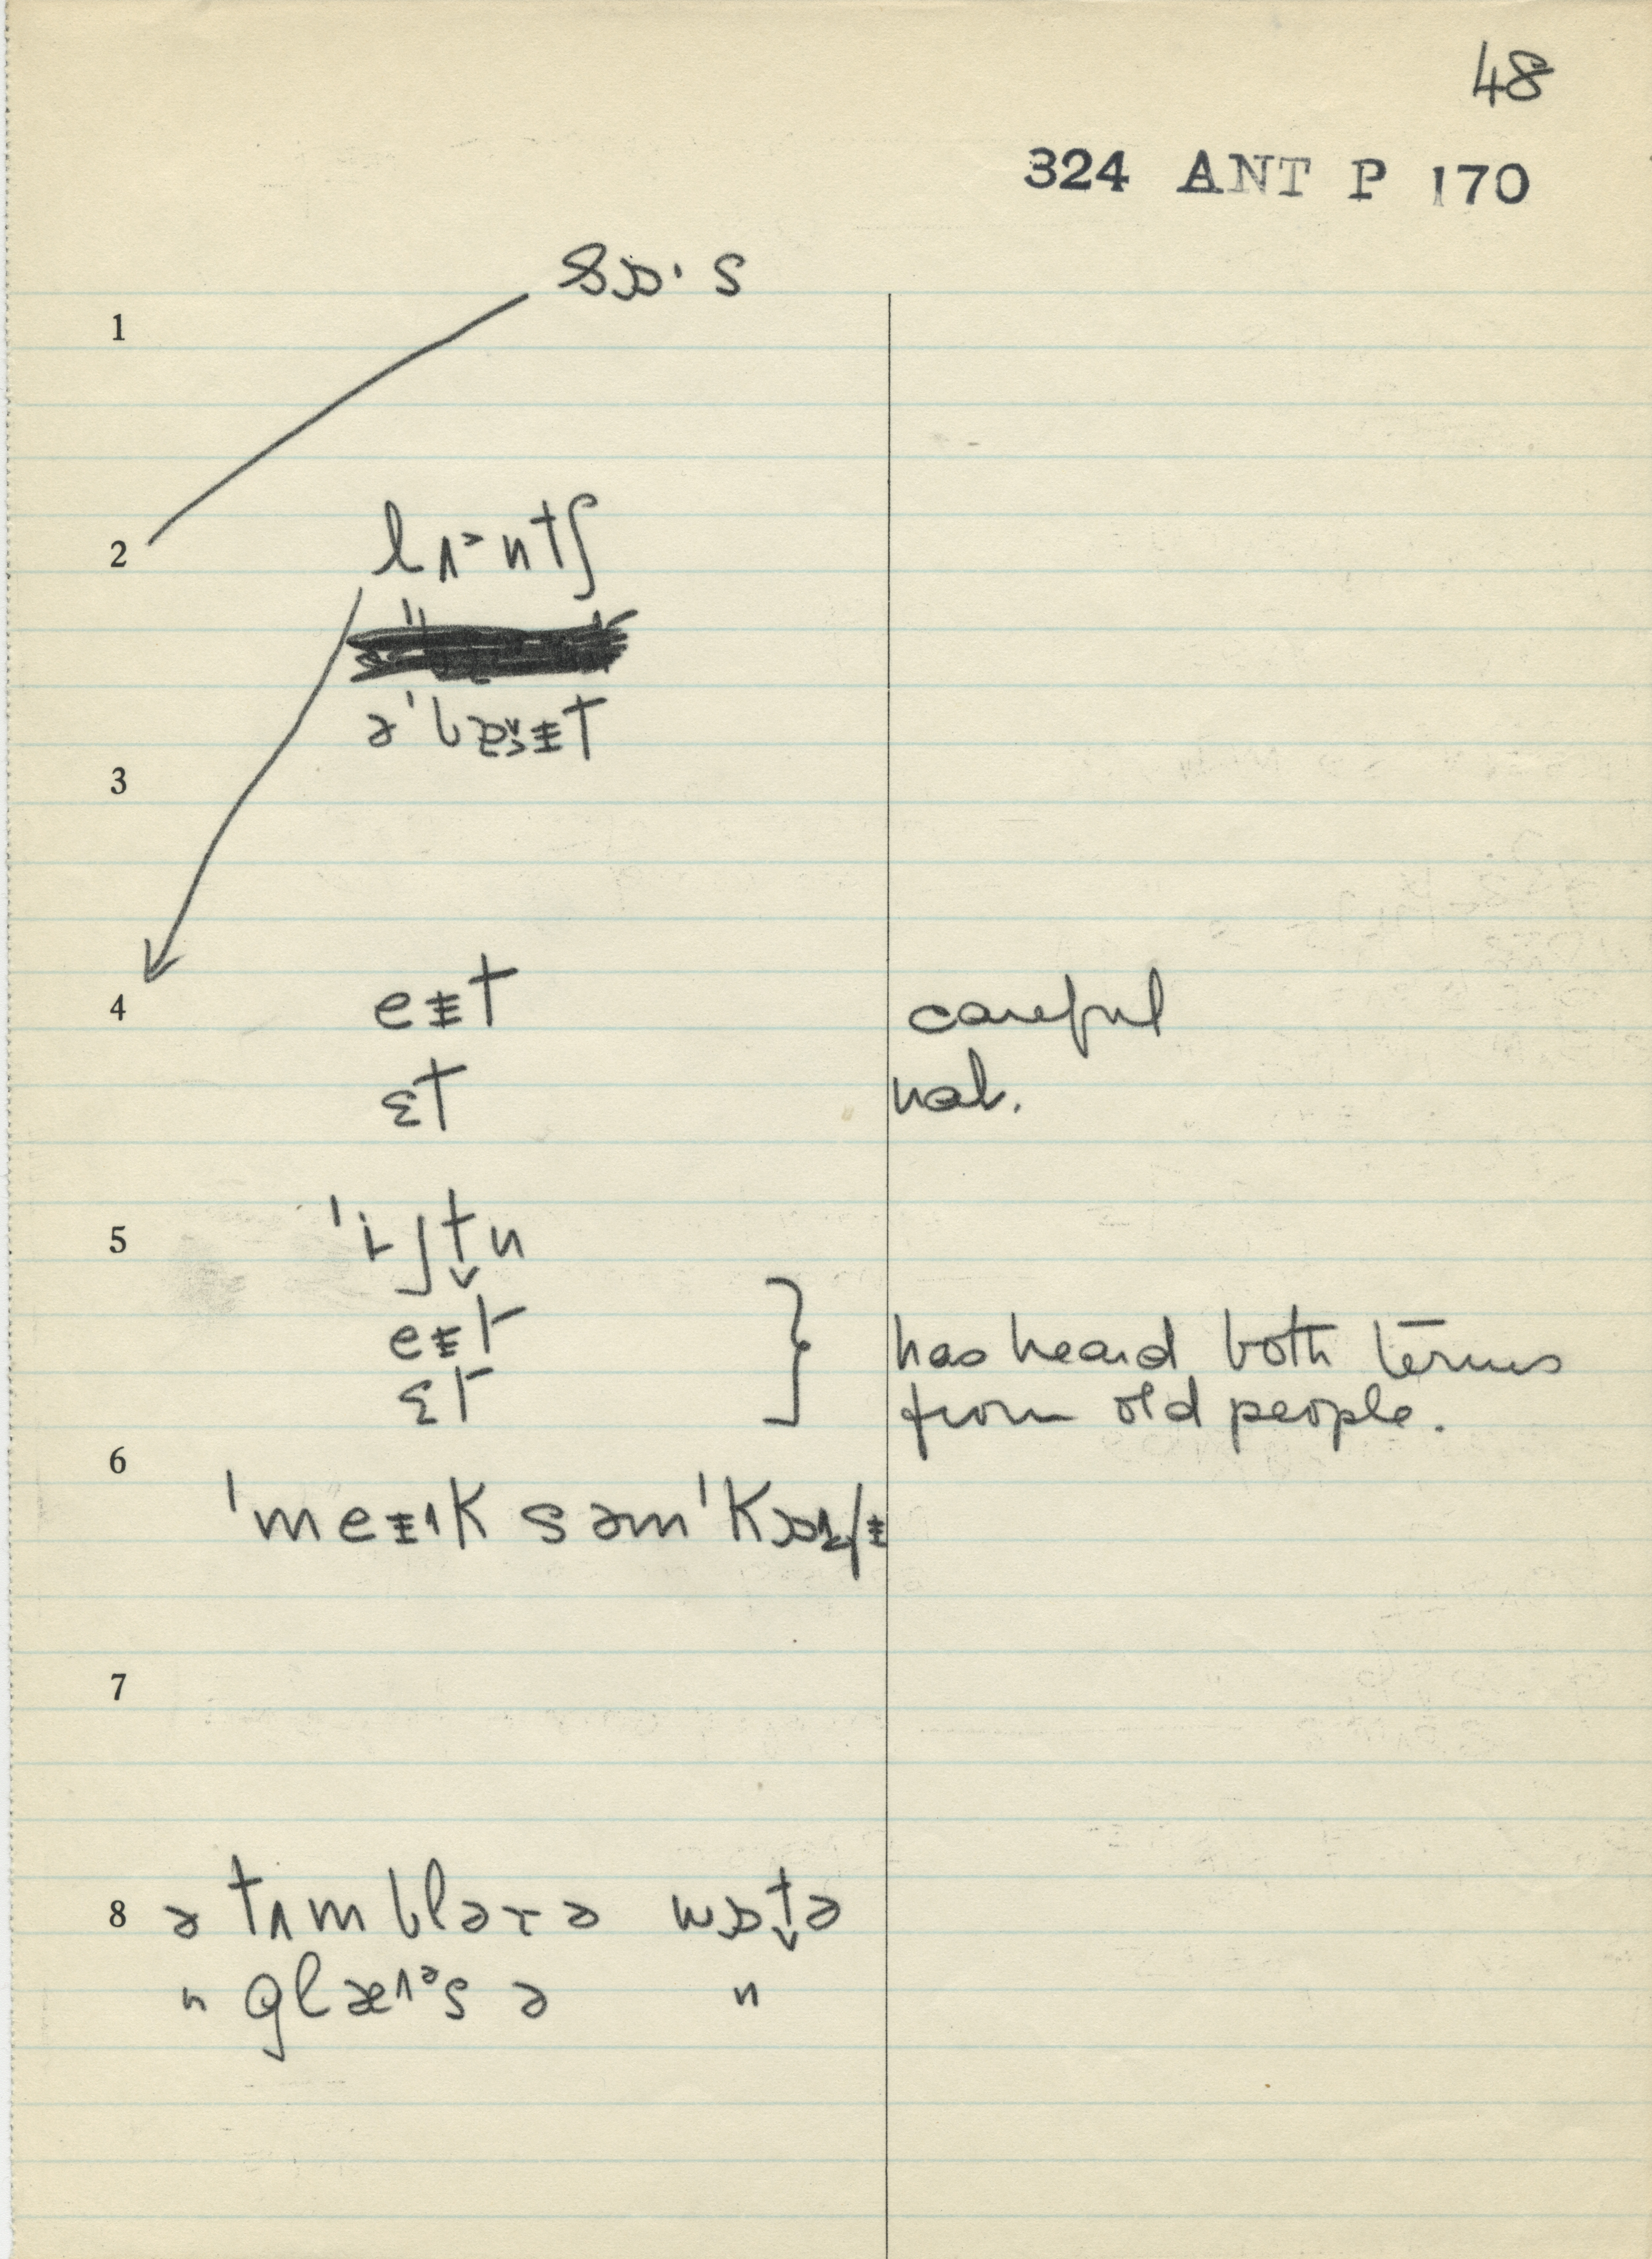 48
324 ANT P 170
sɒ·s
1
2 lʌ˃ntʃ
ə'
3
4 eɪt careful
ɛt nat.
5 'i̞ʃt̬n
eɪt
has heard both terms
ɛt
from old people.
6
'meɪk səm
7
8 ə tʌmblərə wɒt̬ə
" glæᵊs ə "